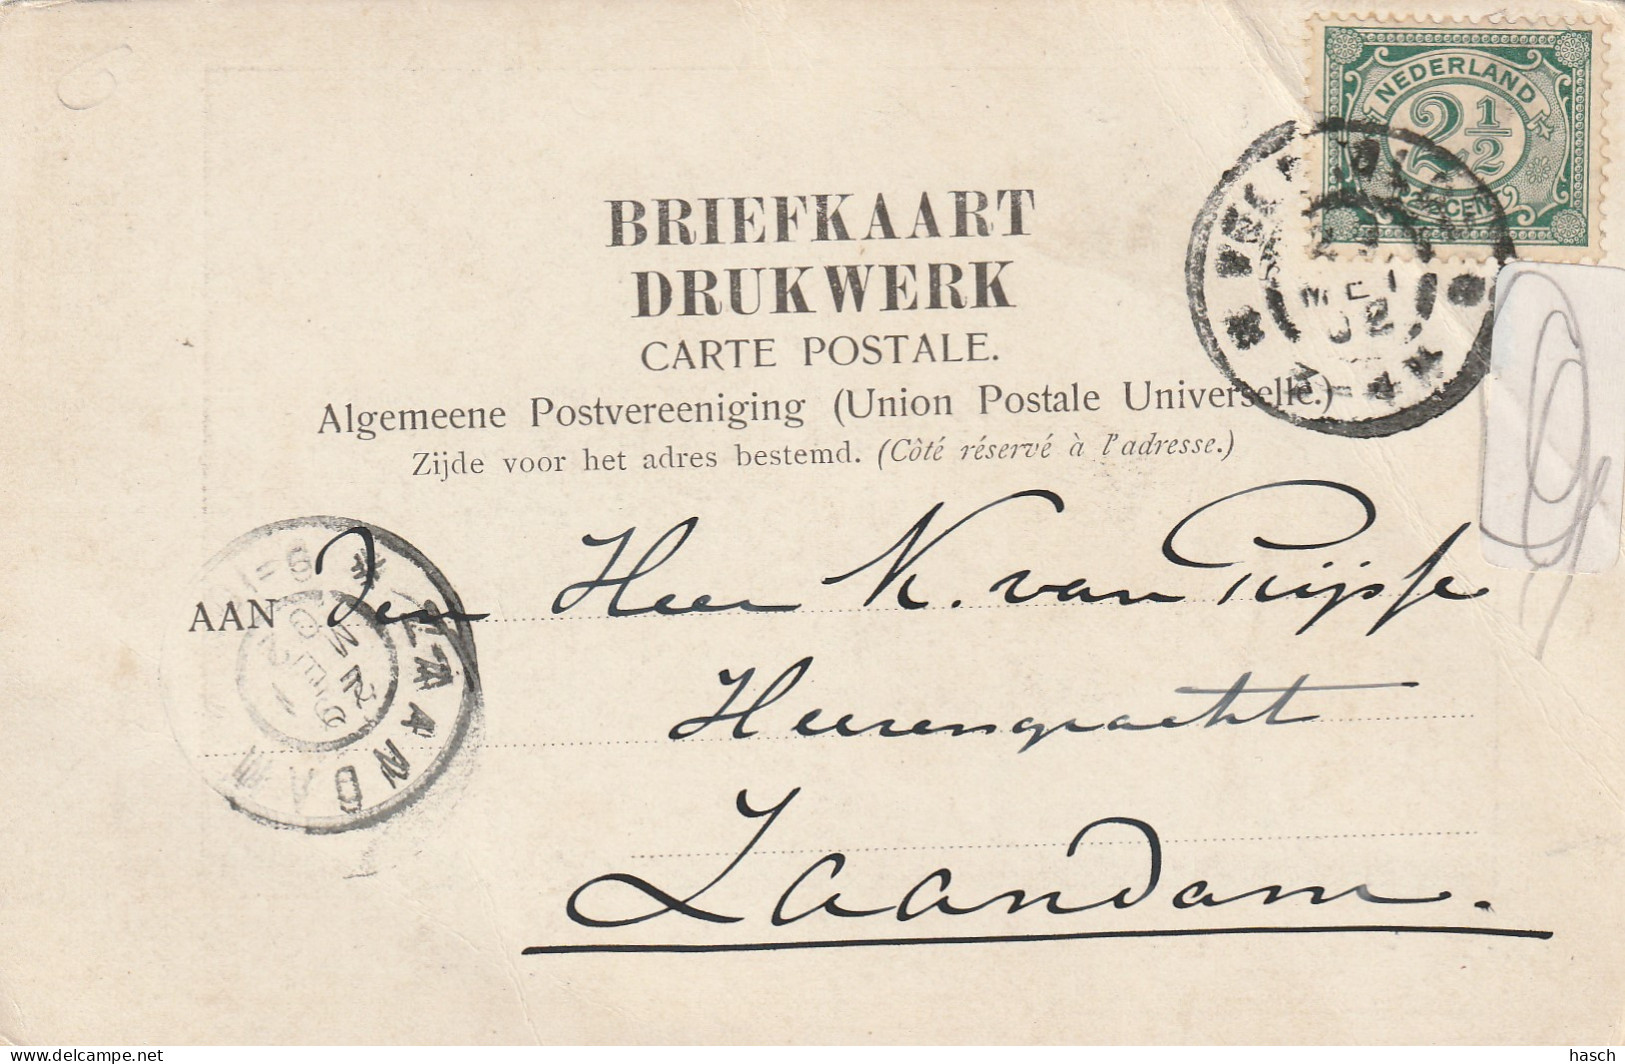 NEDERLAND
2 1/2
CEN
MEI
02
BRIEFKAART
DRUKWERK
CARTE POSTALE.
Algemeene Postvereeniging (Union Postale Universelle.)
Zijde voor het adres bestemd. (Côté réservé à l'adresse.)
AAN Den Heer K. van
Heerengracht
Zaandam.
ZAANDAM
MEI
hasch
delcampe.net